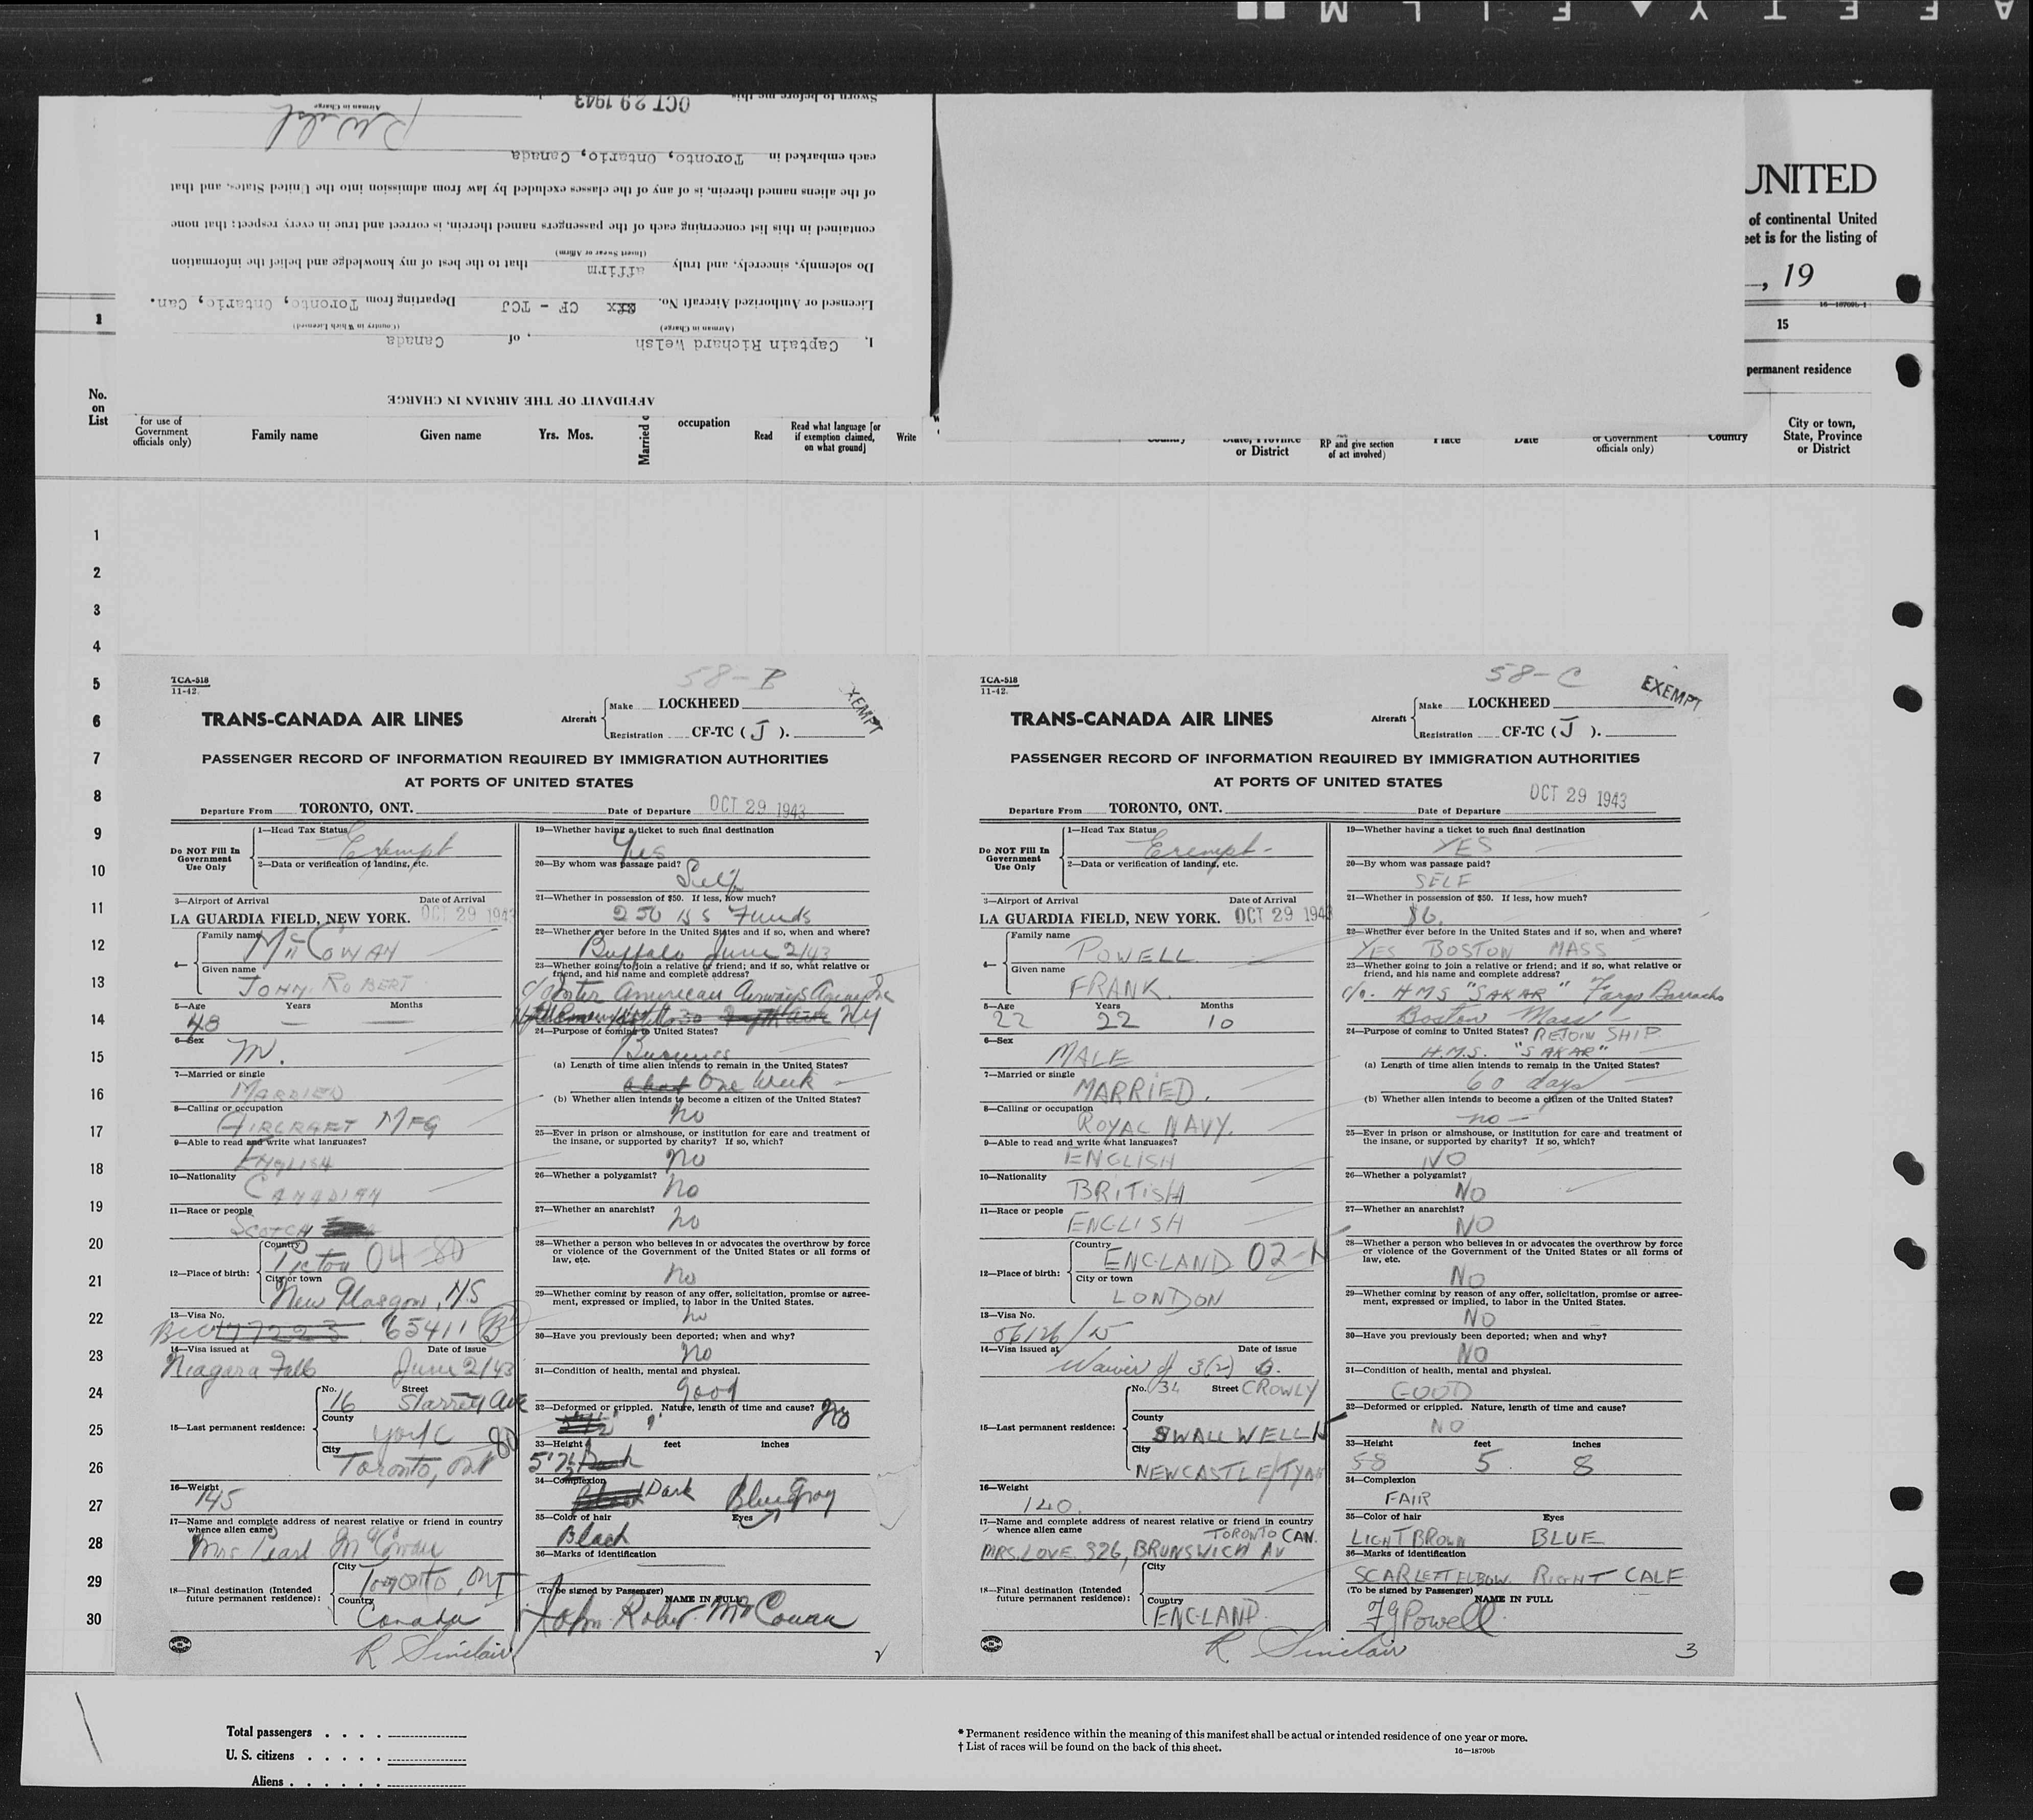 AFETY FILM
UNITED
of continental United
eet is for the listing of
, 19
16—18709b-1
15
permanent residence
City or town,
State, Province
or District
AFFIDAVIT OF THE AIRMAN IN CHARGE
I, Captain Richard Welsh, of Canada
(Airman in Charge) (Country in Which Licensed)
Licensed or Authorized Aircraft No. CF - TCJ Departing from Toronto, Ontario, Can.
Do solemnly, sincerely, and truly affirm that to the best of my knowledge and belief the information
(Insert Swear or Affirm)
contained in this list concerning each of the passengers named therein, is correct and true in every respect; that none
of the aliens named therein, is of any of the classes excluded by law from admission into the United States, and that
each embarked in Toronto, Ontario, Canada
R Welsh
Airman in Charge
Sworn to before me this OCT 29 1943
1
No.
on
List
for use of
Government
officials only)
Family name
Given name
Yrs. Mos.
Married o
occupation
Read
Read what language [or
if exemption claimed,
on what ground]
Write
Country
State, Province
or District
RP and give section
of act involved)
Place
Date
or Government
officials only)
Country
1
2
3
4
5
6
7
8
9
10
11
12
13
14
15
16
17
18
19
20
21
22
23
24
25
26
27
28
29
30
58-B
TCA-518
11-42.
TRANS-CANADA AIR LINES
Aircraft
Make LOCKHEED
Registration CF-TC ( J ).
EXEMPT
PASSENGER RECORD OF INFORMATION REQUIRED BY IMMIGRATION AUTHORITIES
AT PORTS OF UNITED STATES
Departure From TORONTO, ONT. Date of Departure OCT 29 1943
Do NOT Fill In
Government
Use Only
1—Head Tax Status
Exempt
2—Data or verification of landing, etc.
3—Airport of Arrival Date of Arrival
LA GUARDIA FIELD, NEW YORK. OCT 29 1943
4—
Family name
McCOWAN
Given name
JOHN ROBERT
5—Age Years Months
48 — —
6—Sex
M.
7—Married or single
MARRIED
8—Calling or occupation
AIRCRAFT MFG
9—Able to read and write what languages?
ENGLISH
10—Nationality
CANADIAN
11—Race or people
SCOTCH
12—Place of birth:
Country
Pictou 04-80
City or town
New Glasgow, N.S
13—Visa No.
65411 B
14—Visa issued at Date of issue
Niagara Falls June 2/43
15—Last permanent residence:
No. Street
16 Starrett Ave
County
York 80
City
Toronto, Ont
16—Weight
145
17—Name and complete address of nearest relative or friend in country
whence alien came
Mrs Pearl McCowan
18—Final destination (Intended
future permanent residence):
City
Toronto, Ont
Country
Canada
R Sinclair
19—Whether having a ticket to such final destination
Yes
20—By whom was passage paid?
Self
21—Whether in possession of $50. If less, how much?
250 US Funds
22—Whether ever before in the United States and if so, when and where?
Buffalo June 2/43
23—Whether going to join a relative or friend; and if so, what relative or
friend, and his name and complete address?
c/o Inter American Airways Agency Inc
NY
24—Purpose of coming to United States?
Business
(a) Length of time alien intends to remain in the United States?
One Week
(b) Whether alien intends to become a citizen of the United States?
no
25—Ever in prison or almshouse, or institution for care and treatment of
the insane, or supported by charity? If so, which?
no
26—Whether a polygamist?
no
27—Whether an anarchist?
no
28—Whether a person who believes in or advocates the overthrow by force
or violence of the Government of the United States or all forms of
law, etc.
no
29—Whether coming by reason of any offer, solicitation, promise or agree-
ment, expressed or implied, to labor in the United States.
no
30—Have you previously been deported; when and why?
no
31—Condition of health, mental and physical.
good
32—Deformed or crippled. Nature, length of time and cause?
no
33—Height feet inches
5'7½
34—Complexion
Dark Blue Gray
35—Color of hair Eyes
Black
36—Marks of identification
(To be signed by Passenger) NAME IN FULL
John Robert McCowan
2
58-C
TCA-518
11-42.
TRANS-CANADA AIR LINES
Aircraft
Make LOCKHEED
Registration CF-TC ( J ).
EXEMPT
PASSENGER RECORD OF INFORMATION REQUIRED BY IMMIGRATION AUTHORITIES
AT PORTS OF UNITED STATES
Departure From TORONTO, ONT. Date of Departure OCT 29 1943
Do NOT Fill In
Government
Use Only
1—Head Tax Status
Exempt-
2—Data or verification of landing, etc.
3—Airport of Arrival Date of Arrival
LA GUARDIA FIELD, NEW YORK. OCT 29 1943
4—
Family name
POWELL
Given name
FRANK.
5—Age Years Months
22 22 10
6—Sex
MALE
7—Married or single
MARRIED.
8—Calling or occupation
ROYAL NAVY.
9—Able to read and write what languages?
ENGLISH
10—Nationality
BRITISH
11—Race or people
ENGLISH
12—Place of birth:
Country
ENGLAND 02-
City or town
LONDON
13—Visa No.
56126/15
14—Visa issued at Date of issue
Waiver of 3(2)
15—Last permanent residence:
No. 34 Street CROWLY
County
SWALLWELL
City
NEWCASTLE/TYNE
16—Weight
140.
17—Name and complete address of nearest relative or friend in country
whence alien came
TORONTO CAN.
MRS. LOVE. 326, BRUNSWICH AV
18—Final destination (Intended
future permanent residence):
City
Country
ENGLAND.
R. Sinclair
19—Whether having a ticket to such final destination
YES
20—By whom was passage paid?
SELF
21—Whether in possession of $50. If less, how much?
$6.
22—Whether ever before in the United States and if so, when and where?
YES BOSTON MASS
23—Whether going to join a relative or friend; and if so, what relative or
friend, and his name and complete address?
c/o. HMS "SAKAR" Fargo Barracks
Boston Mass
24—Purpose of coming to United States? REJOIN SHIP
H.M.S. "SAKAR"
(a) Length of time alien intends to remain in the United States?
60 days
(b) Whether alien intends to become a citizen of the United States?
no -
25—Ever in prison or almshouse, or institution for care and treatment of
the insane, or supported by charity? If so, which?
NO
26—Whether a polygamist?
NO
27—Whether an anarchist?
NO
28—Whether a person who believes in or advocates the overthrow by force
or violence of the Government of the United States or all forms of
law, etc.
NO
29—Whether coming by reason of any offer, solicitation, promise or agree-
ment, expressed or implied, to labor in the United States.
NO
30—Have you previously been deported; when and why?
NO
31—Condition of health, mental and physical.
GOOD
32—Deformed or crippled. Nature, length of time and cause?
NO
33—Height feet inches
58 5. 8
34—Complexion
FAIR
35—Color of hair Eyes
LIGHT BROWN BLUE
36—Marks of identification
SCAR LEFT ELBOW. RIGHT CALF
(To be signed by Passenger) NAME IN FULL
F G Powell
3
Total passengers . . . .
U. S. citizens . . . . .
Aliens . . . . . .
* Permanent residence within the meaning of this manifest shall be actual or intended residence of one year or more.
† List of races will be found on the back of this sheet.
16—18709b